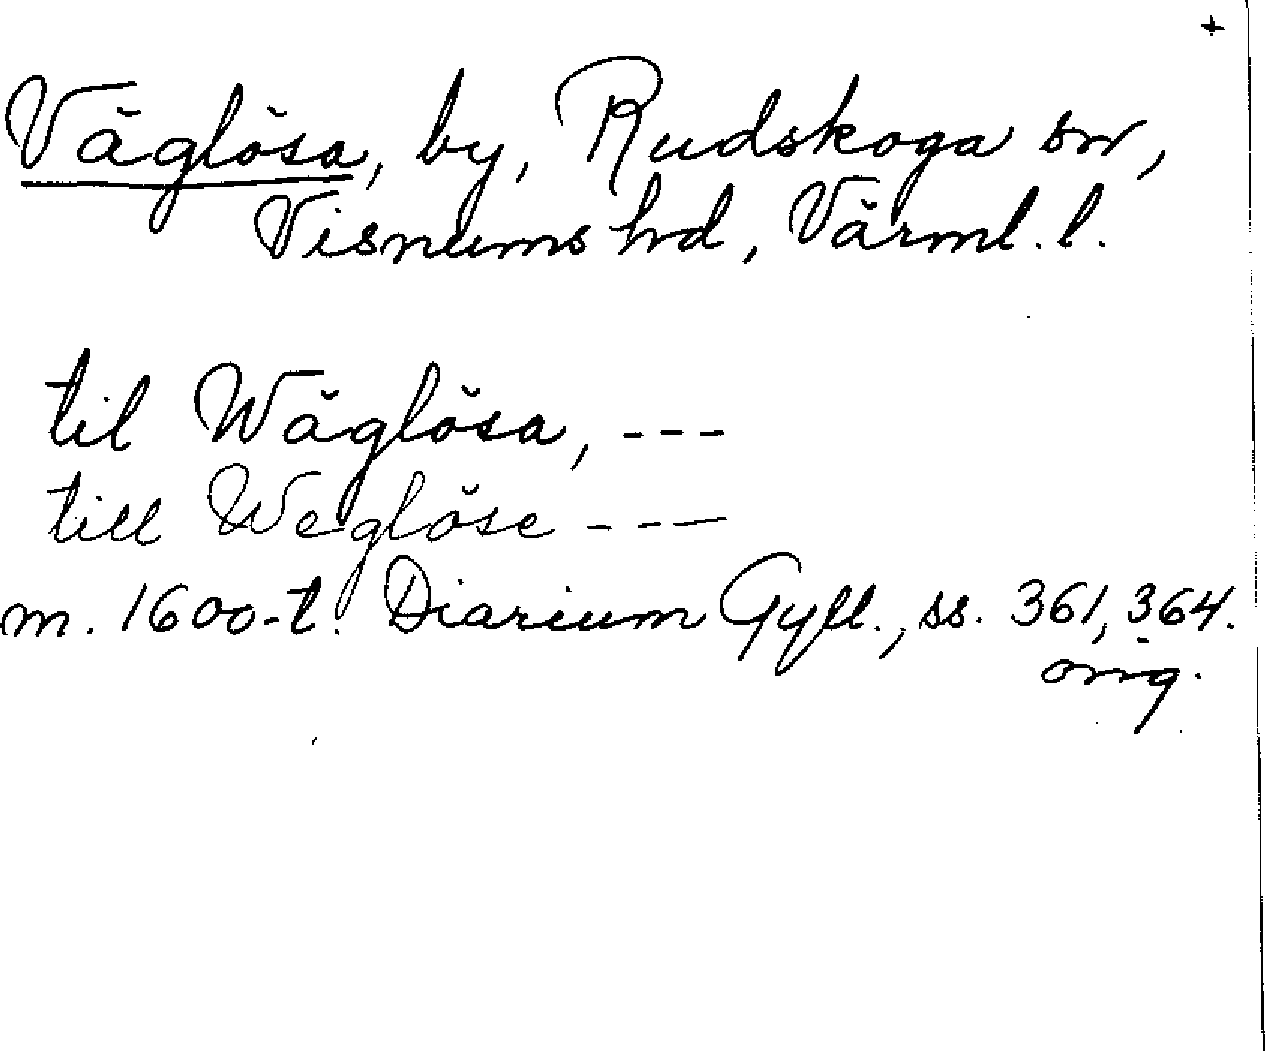 +
Väglösa, by, Rudskoga sn,
Visnums hd, Värml. l.
til Wäglösa, ---
till Weglöse ---
m. 1600-t. Diarium Gyll., ss. 361, 364.
orig.